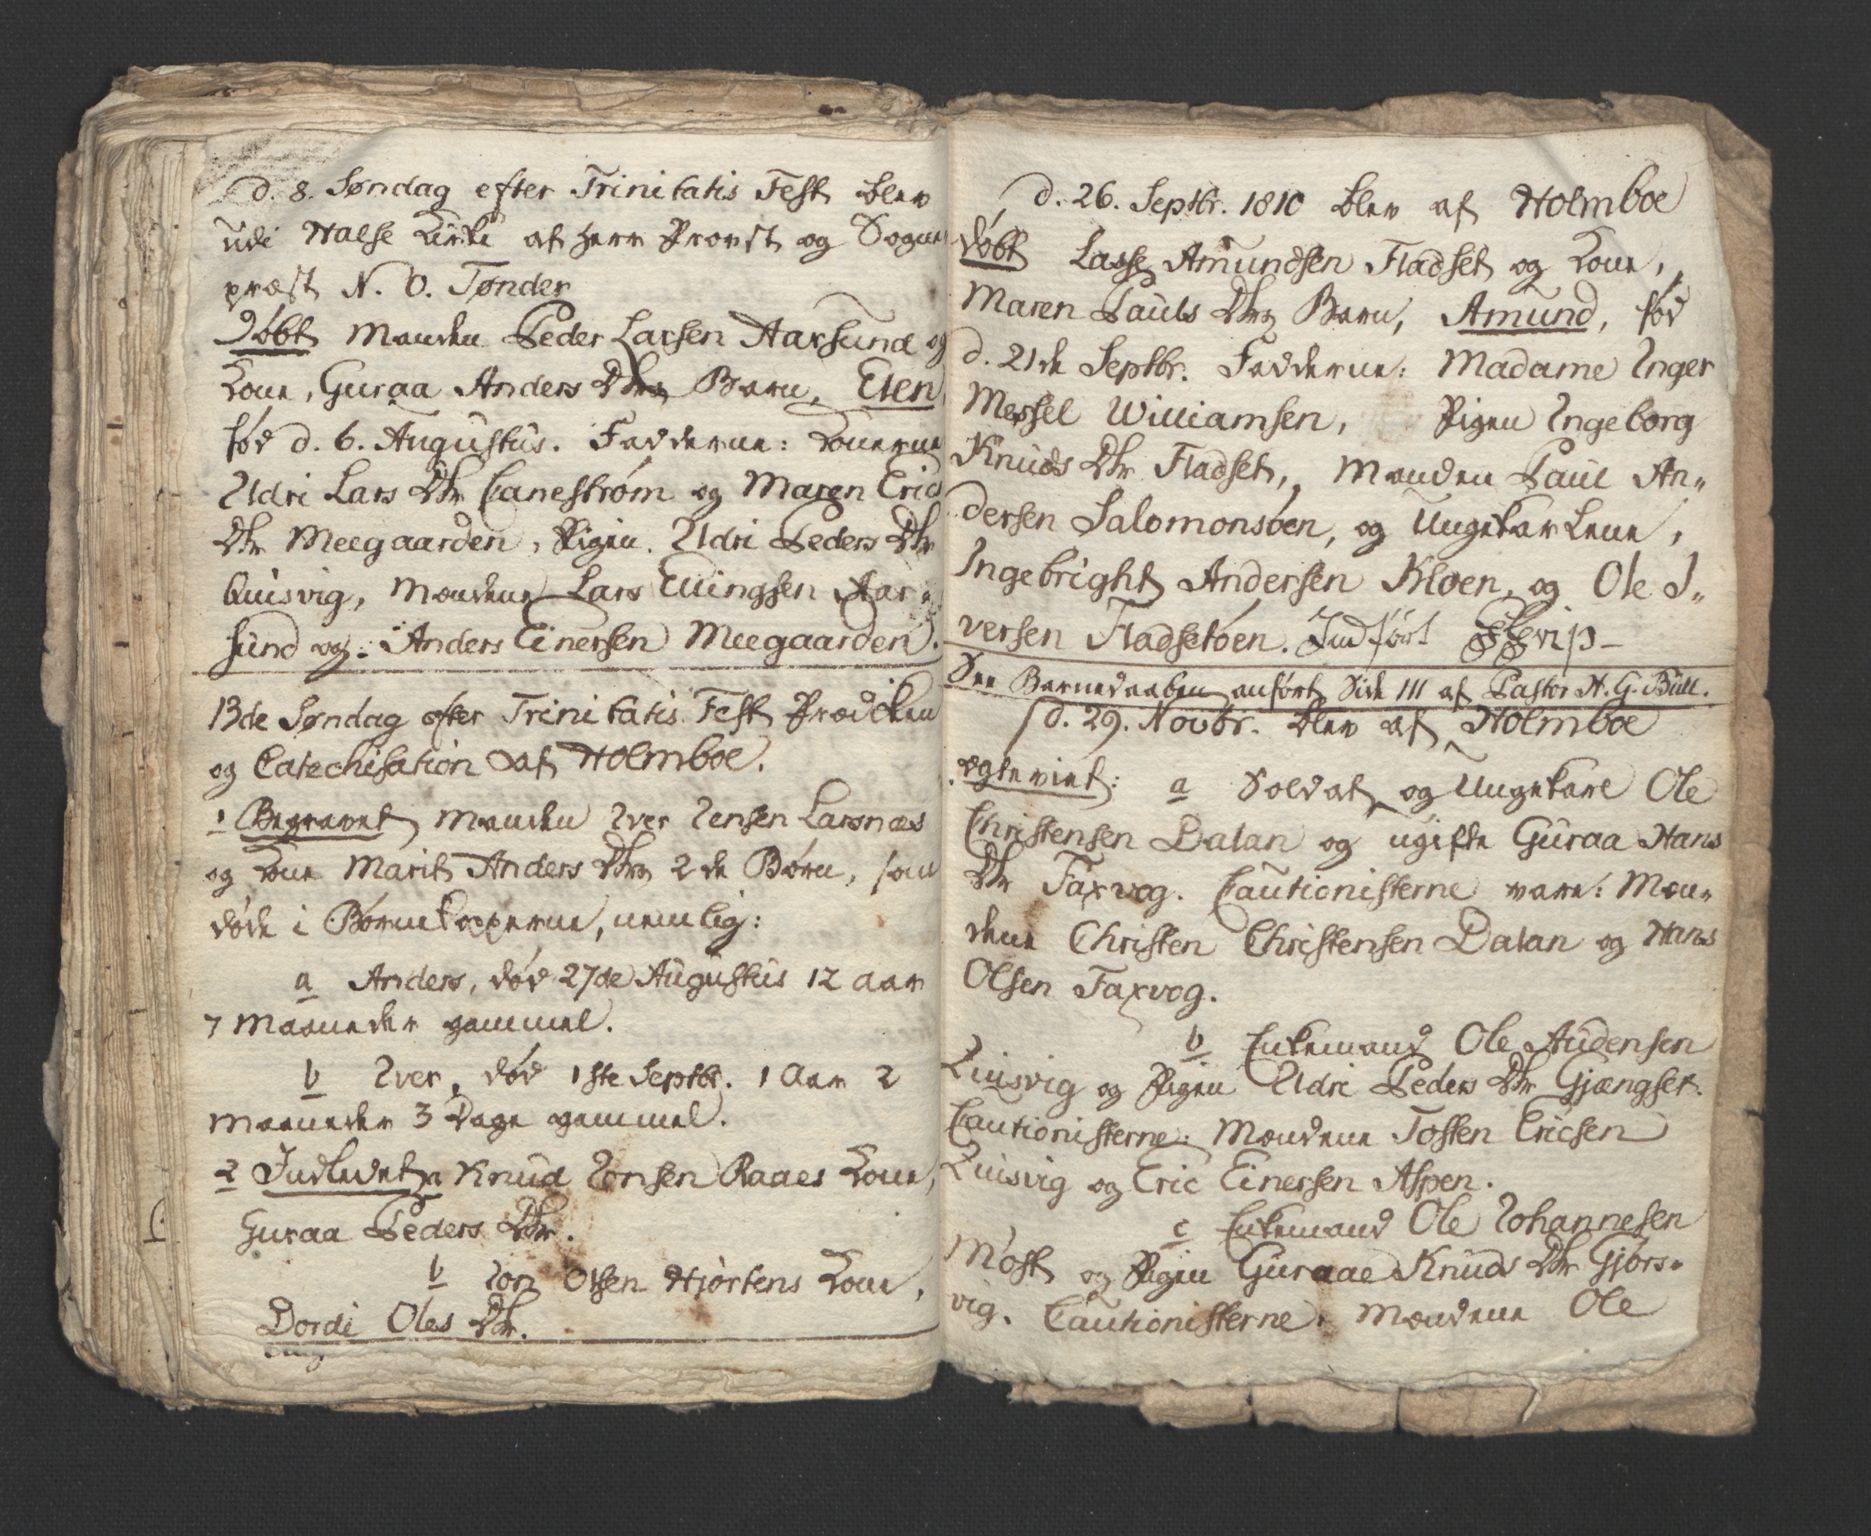 d. 8. Søndag efter Trinitatis Fest blev
udi Halse Kirke af Herr Provst og Sogne
præst N. V. Tønder
Døbt Manden Peder Larsen Aarsund og
Kone, Guraa Anders Dtrs Barn, Elen
fød d. 6. Augustus. Fadderne: Konerne
Eldri Lars Dtr Canestrøm og Maren Erics
Dtr Meegaarden, Pigen Eldri Peders Dtr
Quisvig, Mændene Lars Ellingsen Aar-
sund og Anders Einersen Meegaarden.
13de Søndag efter Trinitatis Fest Prædiken
og Catechisation af Holmboe.
1 Begravet Manden Iver Jensen Larsnæs
og Kone Marit Anders Dtrs 2de Børn, som
døde i Børnekopperne, nemlig:
a Anders, død 27de Augustus 12 Aar
7 Maaneder gammel.
b Iver, død 1ste Septbr. 1 Aar 2
Maaneder 3 Dage gammel.
2 Indledet a Knud Jonsen Raaes Kone,
Guraa Peders Dtr.
b Jon Olsen Hjørtens Kone,
Dordi Oles Dtr.
d. 26. Septbr. 1810 blev af Holmboe
døbt Lasse Amundsen Fladset og Kone,
Maren Pauls Dtrs Barn, Amund, fød
d. 21de Septbr. Fadderne: Madame Inger
Messel Williamsen, Pigen Ingeborg
Knuds Dtr Fladset, Manden Paul An-
dersen Salomonsøen, og Ungekarlene,
Ingebright Andersen Kløen, og Ole I-
versen Fladsetøen. Indført
See Barnedaaben anført Side 111 af Pastor H. G. Bull.
d. 29. Novbr. blev af Holmboe
ægteviet: a Soldat og Ungekarl Ole
Christensen Dalan og ugifte Guraa Hans
Dtr Faxvog. Cautionisterne vare: Mæn-
dene Christen Christensen Dalan og Hans
Olsen Faxvog.
b Enkemand Ole Audensen
Quisvig og Pigen Eldri Peders Dtr Gjængset.
Cautionisterne: Mændene Tosten Ericsen
Quisvig og Eric Einersen Aspen.
c Enkemand Ole Johannesen
Most og Pigen Guraae Knuds Dtr Gjørs-
vig. Cautionisterne: Mændene Ole